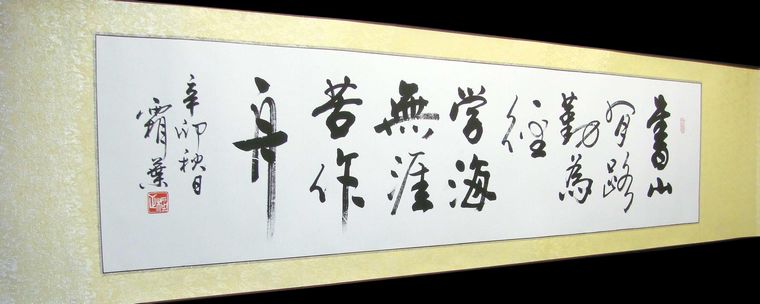 書山
有路
勤為
徑
学海
無涯
苦作
舟
辛卯秋日
霜葉